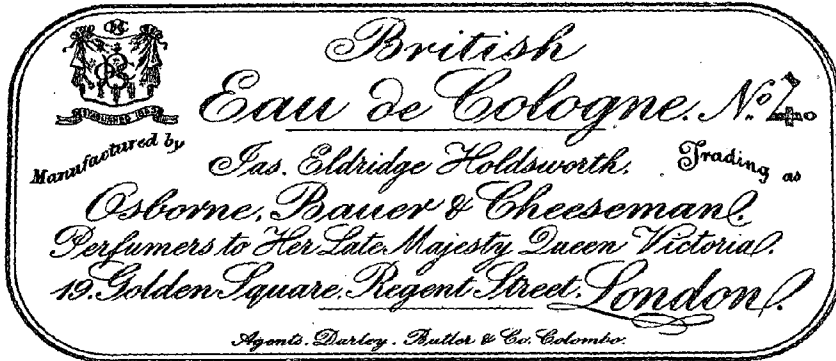 ESTABLISHED
British
Eau de Cologne. No. 4.
Manufactured by Jas. Eldridge Holdsworth. Trading as
Osborne, Bauer & Cheeseman.
Perfumers to Her Late Majesty Queen Victoria.
19. Golden Square. Regent Street. London.
Agents. Darley. Butler & Co. Colombo.